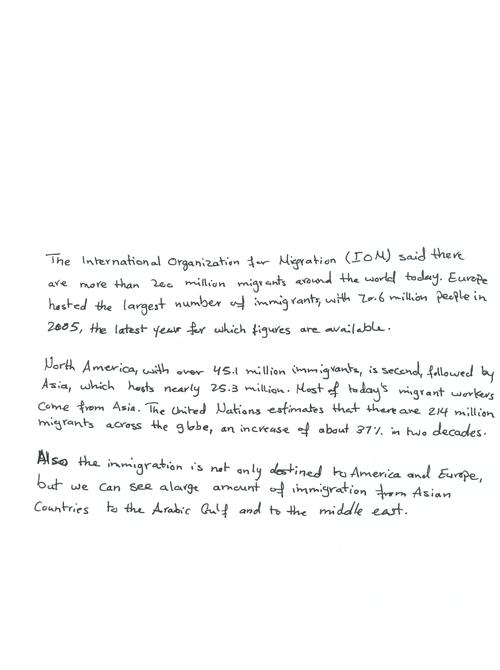 The International Organization for Migration (IOM) said there
are more than 200 million migrants around the world today. Europe
hosted the largest number of immigrants, with 70.6 million people in
2005, the latest year for which figures are available.
North America, with over 45.1 million immigrants, is second, followed by
Asia, which hosts nearly 25.3 million. Most of today's migrant workers
come from Asia. The United Nations estimates that there are 214 million
migrants across the globe, an increase of about 37% in two decades.
Also the inmigration is not only destined to America and Europe,
but we can see alarge amount of immigration from Asian
Countries to the Arabic Gulf and to the middle east.